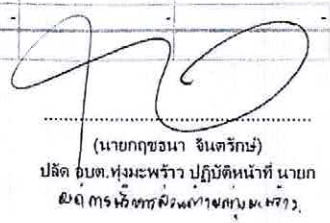 (นายกฤขธนา จินตรักษ์)
ปลัด อบต.ทุ่งมะพร้าว ปฏิบัติหน้าที่ นายก
องค์การบริหารส่วนตำบลทุ่งมะพร้าว